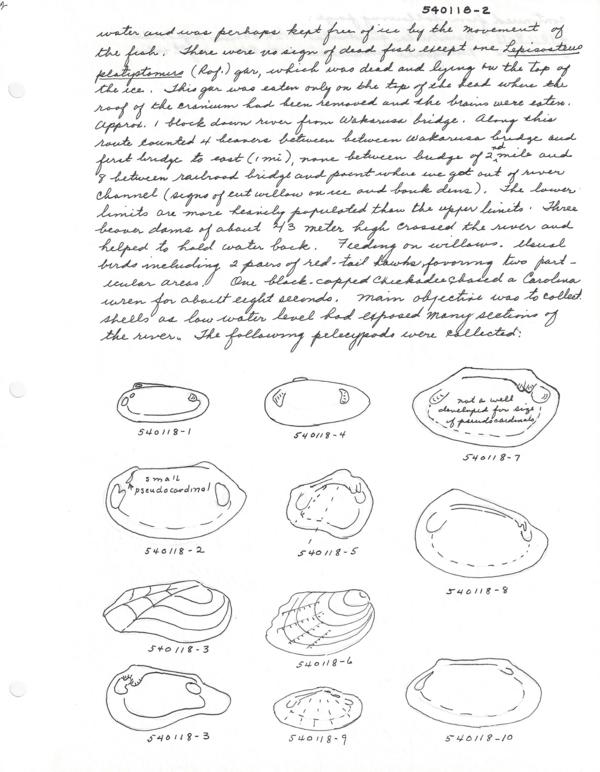 540118-2
water and was perhaps kept free of ice by the movement of
the fish. There were no sign of dead fish except one Lepisosteus
platystomus (Raf.) gar, which was dead and lying on the top of
the ice. This gar was eaten only on the top of the head where the
roof of the cranium had been removed and the brains were eaten.
Approx. 1 block down river from Wakarusa bridge. Along this
route counted 4 beavers between between Wakarusa bridge and
first bridge to east (1 mi), none between budge of 2nd mile and
8 between railroad bridge and point where we get out of river
channel (signs of cut willow on ice and bank dens). The lower
limits are more heavily populated than the upper limits. Three
beaver dams of about 2/3 meter high crossed the river and
helped to hold water back. Feeding on willows. Usual
birds including 2 pairs of red-tail hawks favoring two part-
icular areas. One black-capped Chickadee chased a Carolina
wren for about eight seconds. Main objective was to collect
shells as low water level had exposed many sections of
the river. The following pelecypods were collected:
540118-1
540118-4
not a well
developed for size
of pseudocardinals
540118-7
small
pseudocardinal
540118-2
540118-5
540118-8
540118-3
540118-6
540118-3
540118-9
540118-10